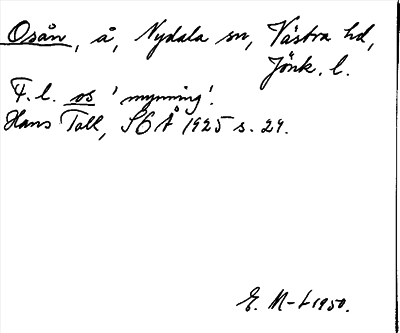 Osån, å, Nydala sn, Västra hd,
Jönk. l.
F. l. os 'mynning'.
Hans Tall, SOÅ 1925 s. 29.
E. M-t 1950.